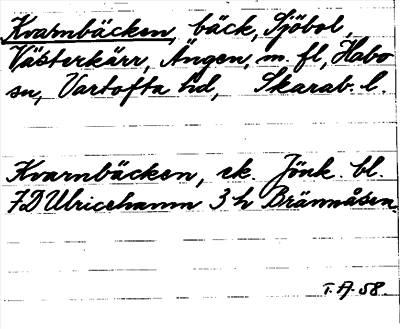 Kvarnbäcken, bäck, Sjöbol,
Västerkärr, Ängen, m. fl, Habo
sn, Vartofta hd, Skarab. l.
Kvarnbäcken, ek. Jönk. bl.
7D Ulricehamn 3 h Brännåsen.
T. A. 58.